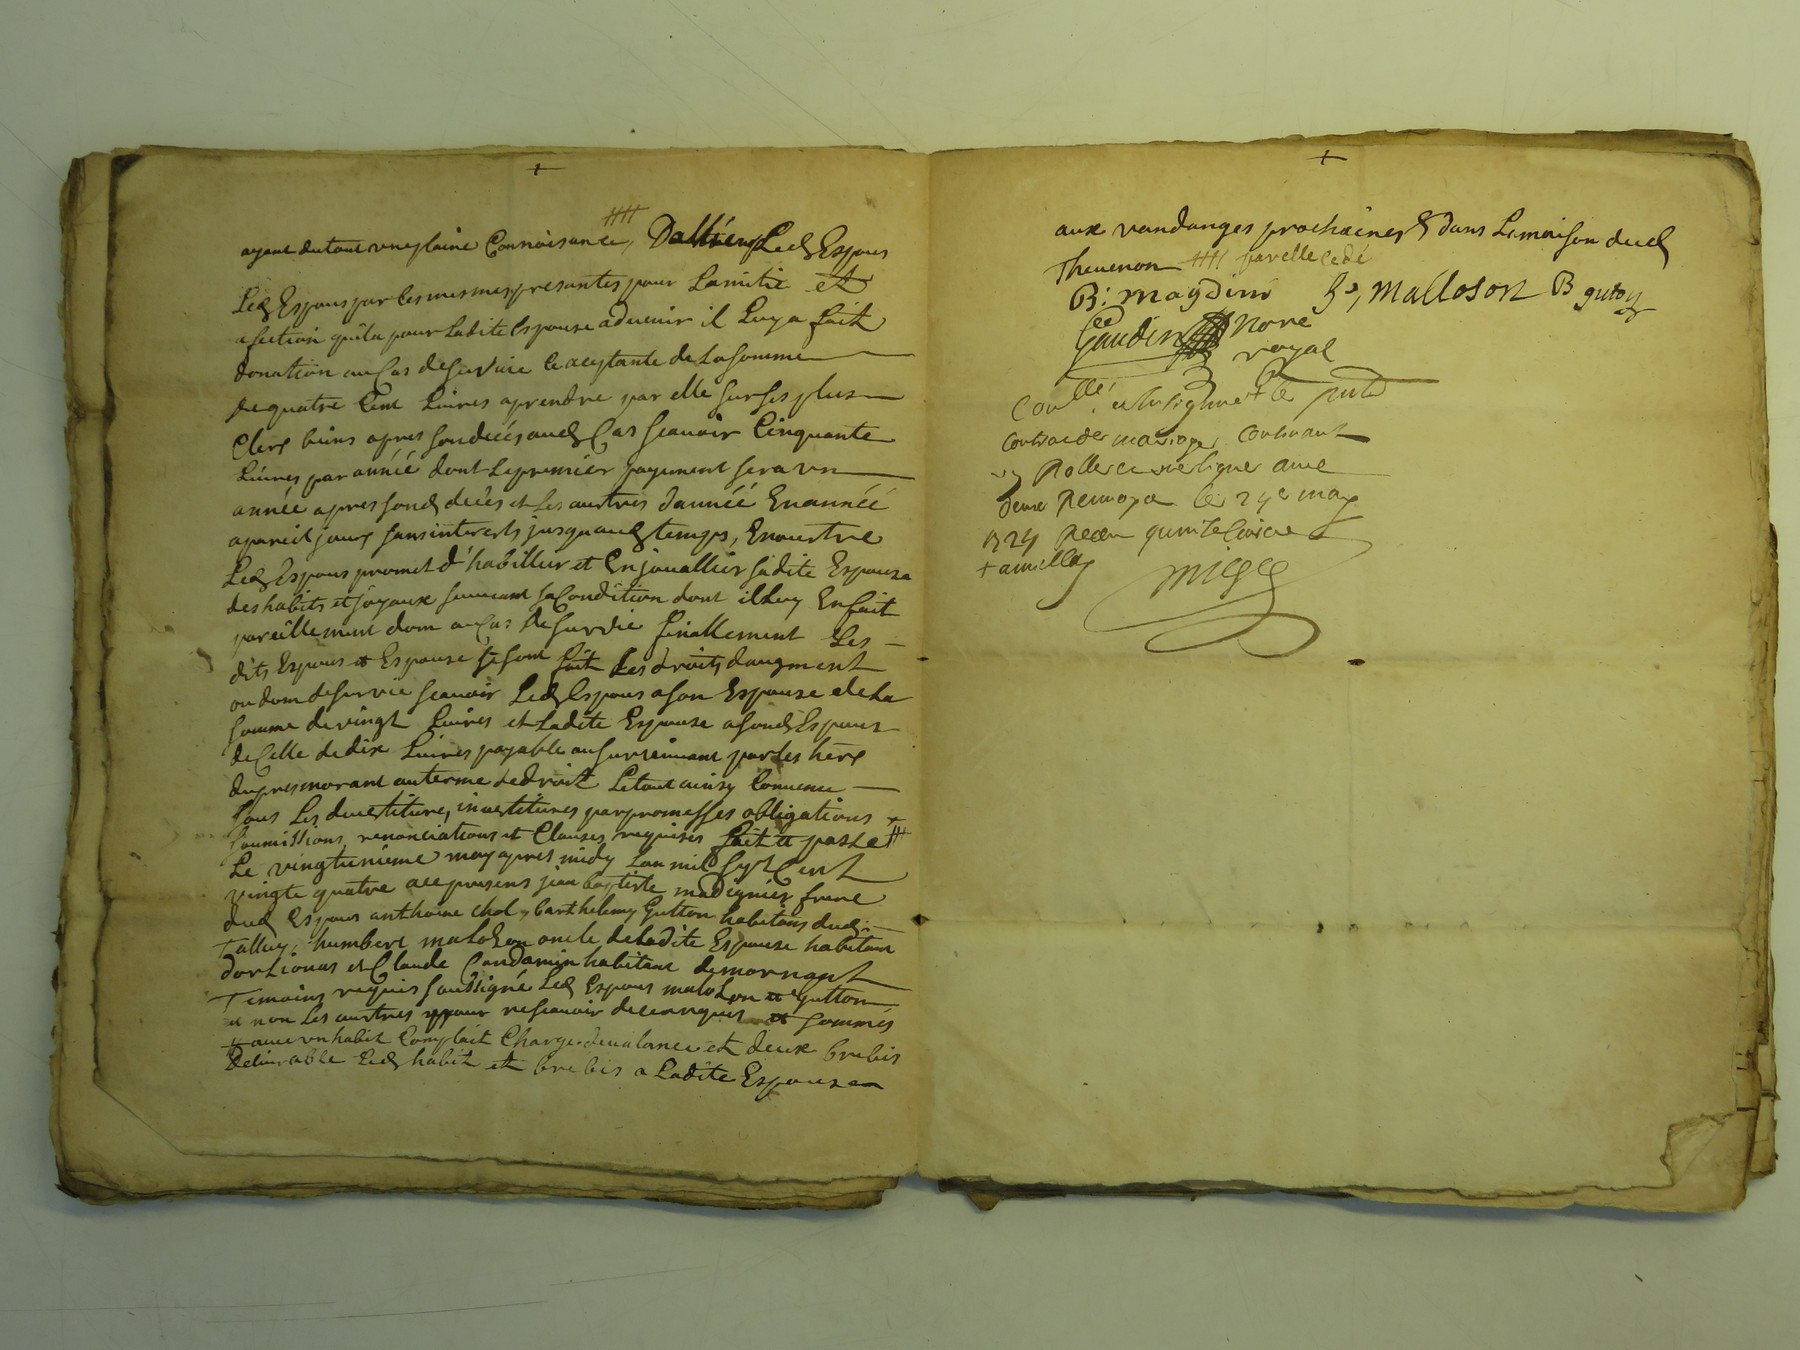 ayant du tout une plaine Connoisance, Dallieurs Led Espous
Led Espous par les mesmes presantes pour Lamitie et
afection quila pour Ladite Espouse advenir il Luy a fait
donation au Cas de survie Ce aceptante de La somme
de quatre Cent Livres aprendre par elle sur ses plus
Clers biens apres son deces aud Cas scavoir Cinquante
Livres par année dont Le premier payement sera un
année apres sond decès et Les austres d'année En année
a pareil jours sans interests jusqu aud temps, En oustre
Led Espous promet d'habiller et Enjouallier sadite Espouse
des habits et joyaux suivant sa Condition dont il Luy En fait
pareillement don au Cas de survie finallement Les
dits Espous et Espouse se sont fait Les droits daugment
ou don de survie scavoir Led Espous a son Espouse de La
somme de vingt Livres et Ladite Espouse a sond Espous
de Celle de dix Livres payable au survivant par Les hers
du premorant au terme de droit Le tout ainsy Convenu
sous Les devestitures, investitures par promesses obligations
soumissions, renonciations et Clauses requises fait et passé
Le vingtunieme may apres midy Lan mil sept Cent
vingte quatre aux presens jean baptiste madignier frere
dud Espous anthoine Chol, barthelemy Gutton habitans dud
Talluy, humbert maloson oncle de Ladite Espouse habitant
dorlienas et Claude Condamin habitant de mornant
Temoins requis soussigné Led Espous maloson et Gutton
et non Les austres pour ne scavoir de ce enquis et sommés
+ avec un habit Complait Charge de valance et deux brebis
Delivrable Led habit et brebis a Ladite Espouse
aux vandanges prochaines dans La maison dud
Thevenon par elle cedé
B: magdinié Malloson B gutoy
Gaudin Nore
royal
Coullé
Contract de mariage Contenant
Rolle
le 24e may
1724 Receu